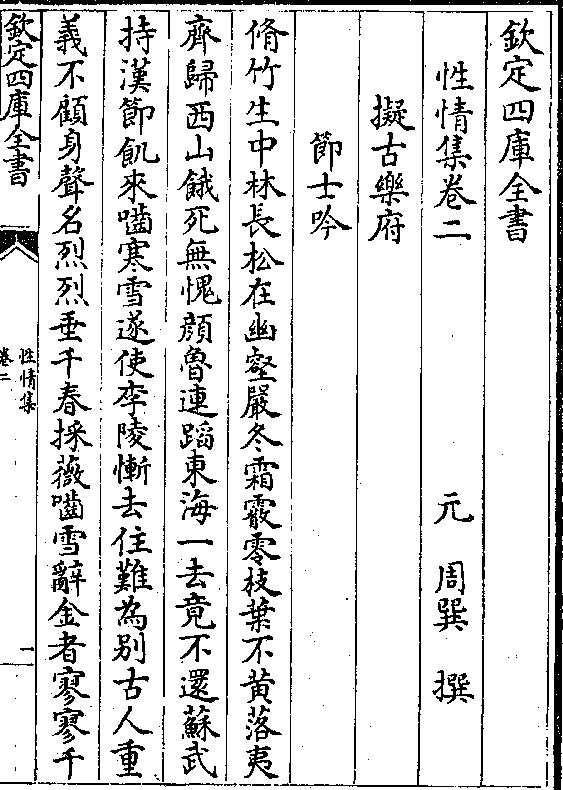 欽定四庫全書
性情集卷二
元 周巽 撰
擬古樂府
節士吟
脩竹生中林長松在幽壑嚴冬霜霰零枝葉不黄落夷
齊歸西山餓死無愧顔魯連蹈東海一去竟不還蘇武
持漢節飢來嚙寒雪遂使李陵慚去住難為别古人重
義不顧身聲名烈烈垂千春採薇嚙雪辭金者寥寥千
欽定四庫全書
性情集
卷二
一